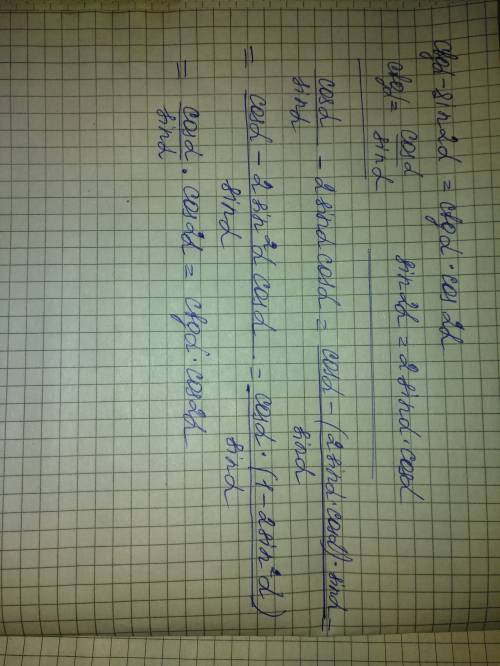 ctgα - sin2α = ctgα · cos2α
ctgα = cosα / sinα sin2α = 2sinα · cosα
cosα / sinα - 2sinαcosα = (cosα - (2sinα · cosα) · sinα) / sinα =
= (cosα - 2sin²αcosα) / sinα = (cosα · (1 - 2sin²α)) / sinα
= cosα / sinα · cos2α = ctgα · cos2α